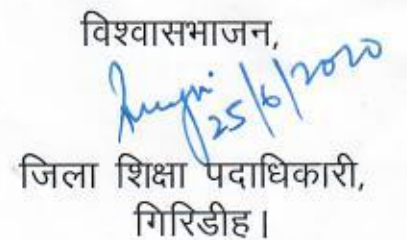 विश्वासभाजन,
25/6/2020
जिला शिक्षा पदाधिकारी,
गिरिडीह।